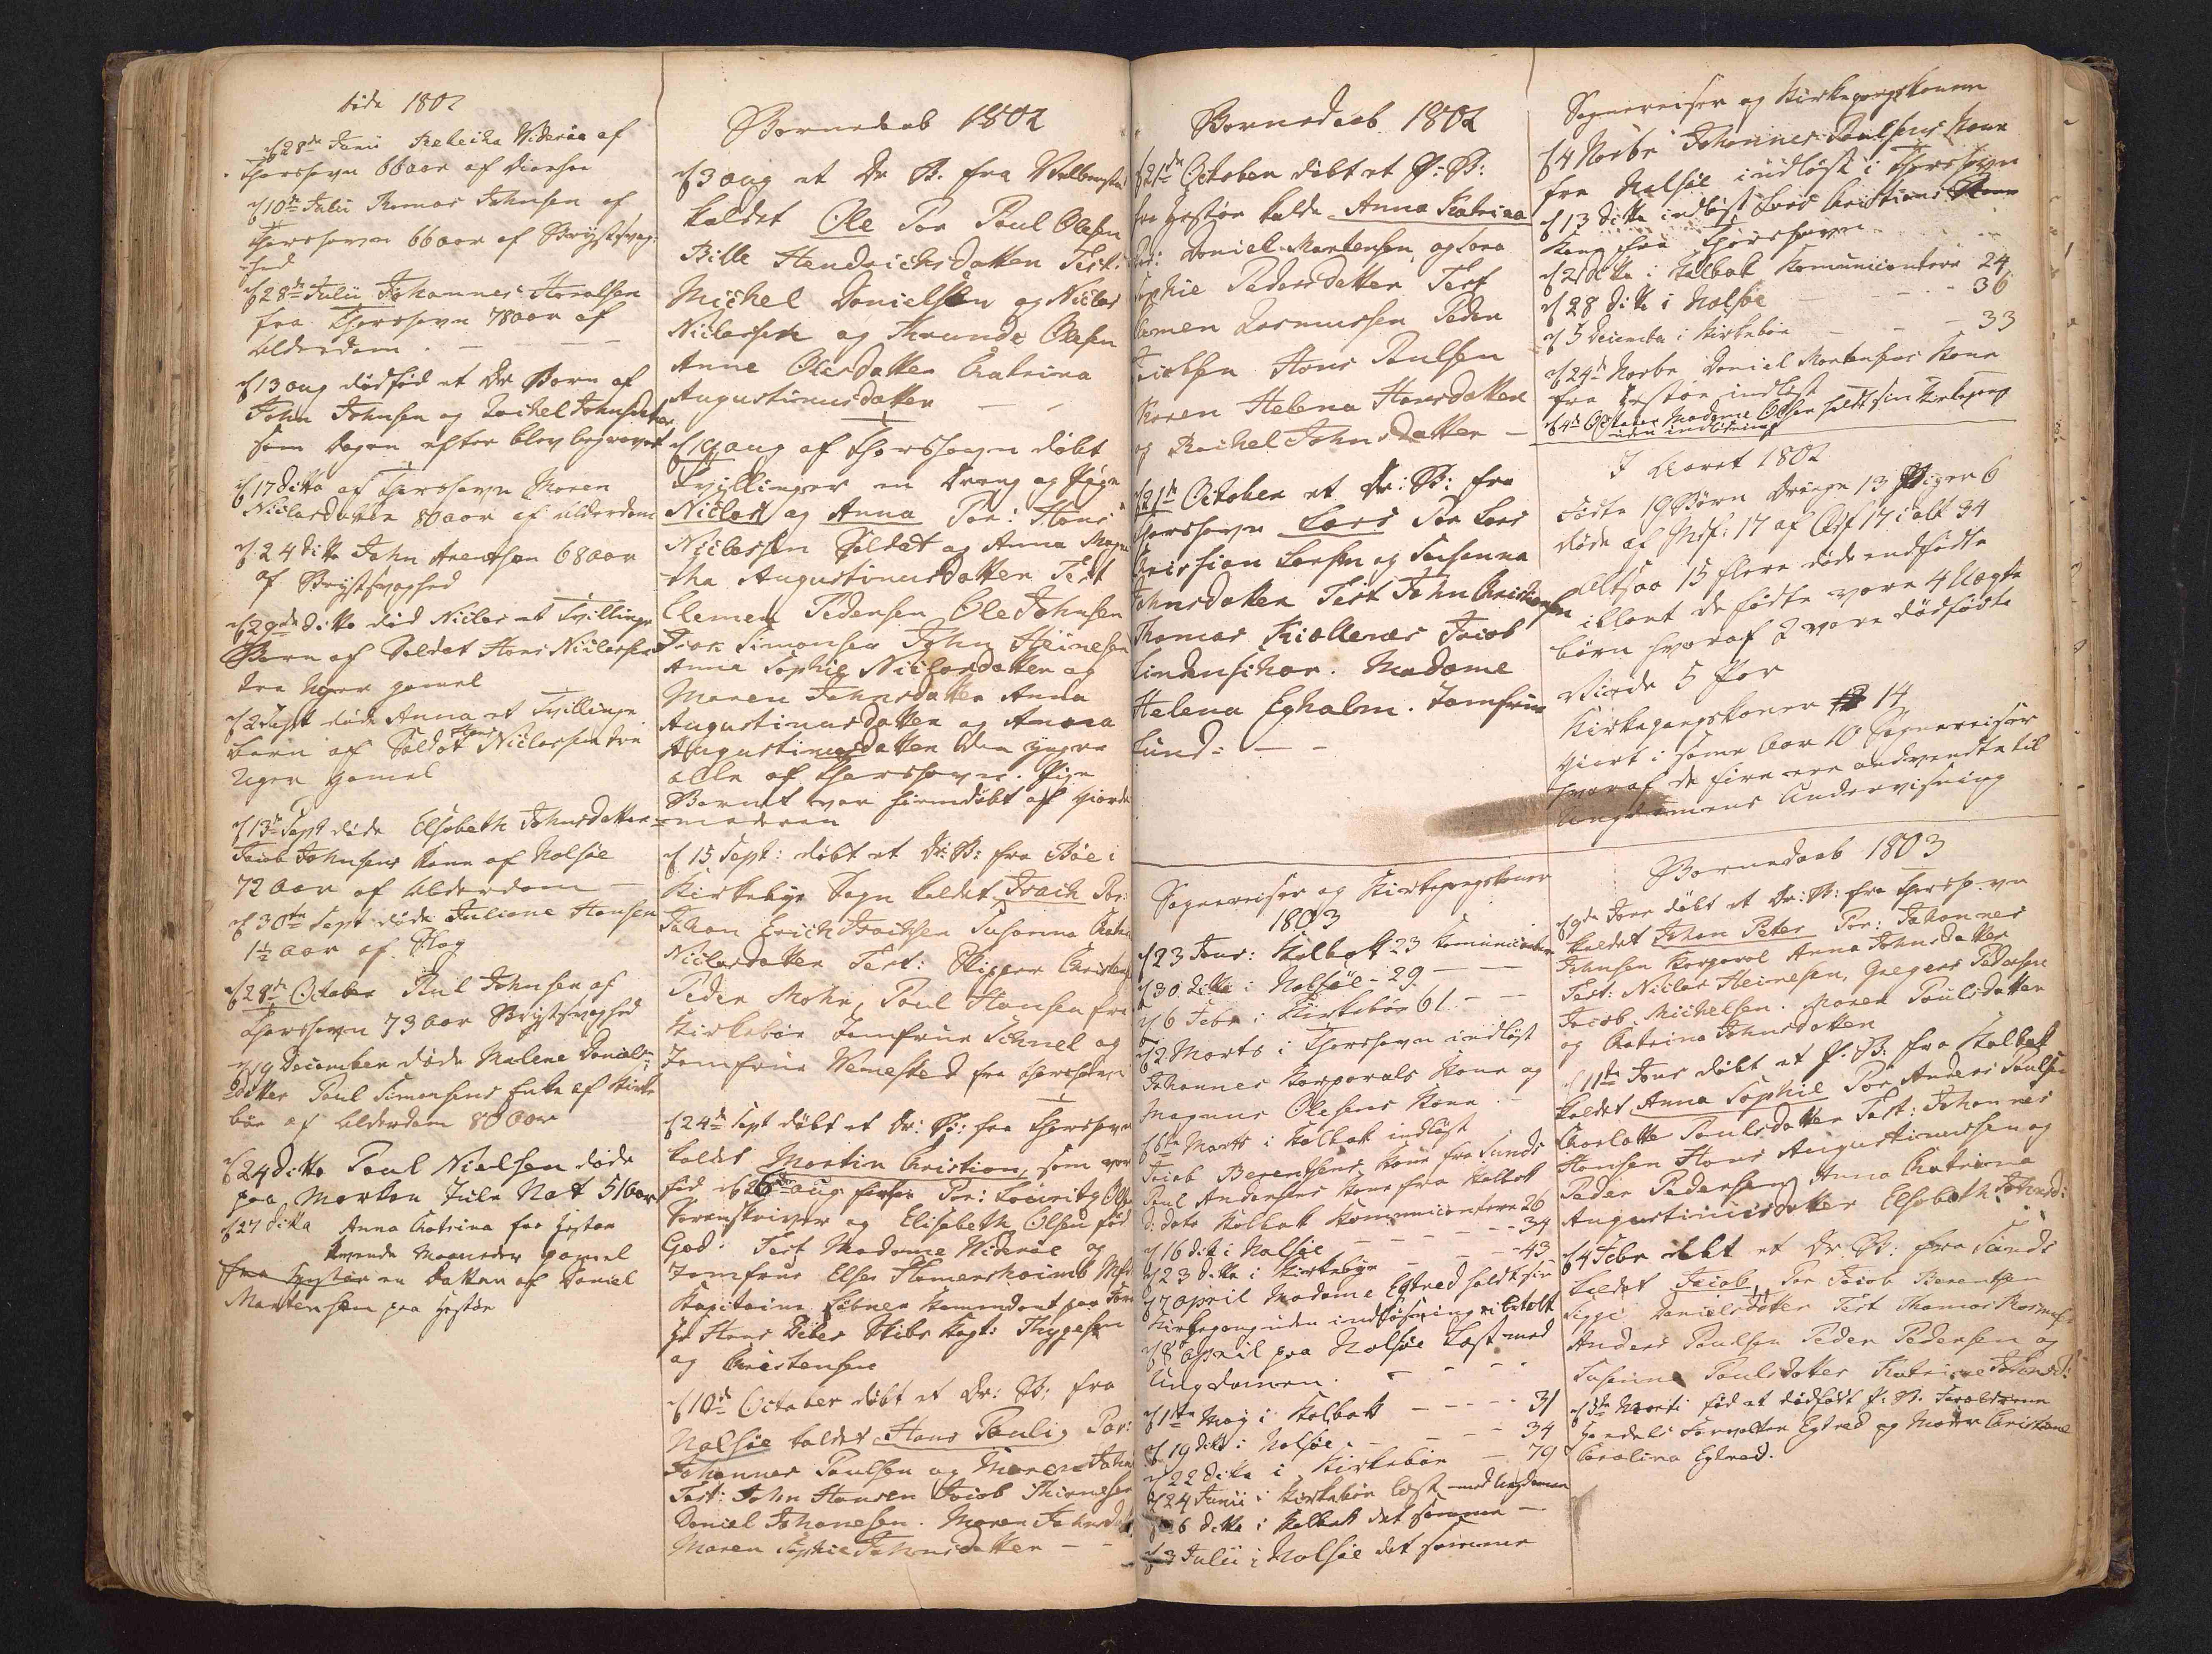 døde 1802
d 28de Junii Rebeicka Viderøe af
Thorshavn 66 aar af Diarhee
d 10de Julii Thomas Johnsen af
Thorshavn 66 aar af Brystsvag-
hed
d 28de Julii Johannes Haralsen
fra Thorshavn 78 aar af
Alderdom
d 13 aug dødfød et Dr Barn af
John Johnsen og Rachel Johnsdatter
som Dagen efter blev begravet
d 17 ditto af Thorshavn Maren
Niclasdatter 86 aar af Alderdom
d 24 ditto John Arentsen 68 aar
af Brystsvaghed
d 29de ditto død Niclas et Tvillinge
Barn af Soldat Hans Niclassen
tre Uger gamel
d 2 Sept døde Anna et Tvillinge
barn af Soldat Hans Niclassen tre
Uger gamel
d 13de Sept døde Elsebeth Johnsdatter
Jacob Johnsens Kone af Nolsøe
72 Aar af Alderdom
d 30te Sept døde Juliane Hansen
1½ Aar af Slag
d 28de October Poul Johnsen af
Thorshavn 73 Aar Brystsvaghed
d 19 December døde Malene Daniels-
datter Poul Simonsens Enke af Kirke
bøe af Alderdom 80 Aar
d 24 ditto Poul Nielsen døde
paa Marken Jule Nat 51 Aar
d 27 ditto Anna Chatrina fra Hestøe
Maaneder gamel
fra Hestøe en Datter af Daniel
Mortensen paa Hestøe
Børnedaab 1802
d 3 aug et Dr B. fra Velbestad
kaldet Ole For Poul Olesen
Bille Hendrichsdatter Test:
Michel Danielsen og Niclas
Niclassen og Throunde Olesen
Anne Olesdatter Chatrina
Augustinusdatter
d 19 aug af Thorshavn døbt
Tvillinger en Dreng og Pige
Niclas og Anna For: Hans
Niclassen Soldat og Anna Magre
tha Augustinusdatter Test
Clemen Pedersen Ole Johnsen
Isak Simonsen John Heinesen
Anne Sophie Niclasdatter og
Maren Johnsdatter Anna
Augustinusdatter og Anna
Augustinusdatter den yngre
alle af Thorshavn. Pige
Barnet var hiemdøbt af Giorde
moderen
d 15 Sept: døbt et Dr: B: fra Bøe i
Kirkebye Sogn kaldet Isach For:
Johan Erich Isachsen Susanna Chatr
Niclasdatter Test: Skipper Christensen
Peder Mohr, Poul Hansen fra
Kirkebøe Jomfrue Schnel og
Jomfrue Wenested fra Thorshavn
d 24de Sept døbt et Dr: B: fra Thorshavn
kaldet Martin Christian, som var
fød d 26de aug For: Louritz Olsen
Sorenskriver og Elisabeth Olsen fød
God. Test Madame Widerøe og
Jomfrue Else Hamershaimb Msr
Kapitaine Løbner Komendant paa Færø
Hr Hans Debes Skibs Kapt: Thygesen
og Christensen
d 10de October døbt et Dr: B: fra
Nolsøe kaldet Hans Pauli For:
Johannes Poulsen og Maren John
Test: John Hansen Jacob Thomesen
Daniel Johanesen. Maren Johnsd
Maren Sophie Johansdatter
Børnedaab 1802
d 21de October døbt et P: B:
fra Hestøe kaldt Anna Katrina
For: Daniel Mortensen og Sara
Sophie Pedersdatter Test
Clemen Rasmussen Peder
Jacobsen Hans Poulsen
Maren Helena Hansdatter
og Rachel Johnsdatter
d 21de October et Dr: B: fra
Thorshavn Lars For Lars
Christian Larsen og Susanna
Johnsdatter Test John Christiansen
Thomas Kiollenæs Jacob
Lindenschov. Madame
Helena Egholm. Jomfrue
Lund:
Sognereiser og Kirkegangskoner
1803
d 23 Janr: Kolbak 23 Komunicanter
d 30 ditto i Nolsøe - 29
d 6 Febr i Kirkebøe 61
d 2 Marts i Thorshavn indløst
Johannes Korporals Kone og
Magnus Olesens Kone
d 6te Marts i Kolbak indløst
Jacob Berentsens Kone fra Sunde
Poul Andersens Kone fra Kolbak
d: dato Kolbak Komunicantere 26
d 16 dito i Nolsøe - 34
d 23 ditto i Kirkebye - 43
d 7 April Madame Egtved holdt sin
Kirkegang uden indløsning ei betalt
d 8 April paa Nolsøe Læst med
Ungdomen.
d 1te May i Kolbak - 31
d 19 ditto i Nolsøe - 34
d 22 ditto i Kirkebøe - 79
d 24 Junii i Kirkebøe læst med Ungdomen
d 26 ditto i Kolbak det samme
d 3 Julii i Nolsøe det samme
Sognereiser og Kirkegangskoner
d 4 Novbr Johannes Poulsens Kone
fra Nolsøe indløst i Thorshavn
d 13 ditto indløst Lars Christians
Kone fra Thorshavn
d 21 ditto i Kalbak Komunicantere 24
d 28 ditto i Nolsøe - 36
d 5 December i Kirkebøe - 33
d 24de Novbr Daniel Mortensens Kone
fra Hestøe indløst
d 4de October Madame Olsen holdt sin Kirkegang
uden indløsning
I Aaret 1802
Fødte 19 Børn Drenge 13 Piger 6
døde af Msk: 17 af Qvk 17 i alt 34
altsaa 15 flere døde end fødte
iblant de fødte vare 4 Uægte
børn hvoraf 2 vare dødfødte
Viede 5 Par
Kirkegangskoner 14
Giort i same Aar 10 Sognereiser
hvoraf de fire ere andvendte til
Ungdomens Undervisning
Børnedaab 1803
d 9de Janr døbt et Dr: B: fra Thorshavn
kaldet Johan Peter For: Johannes
Johnsen Korporal Anna Johnsdatter
Test: Niclas Heinesen, Gregers Pedersen
Jacob Michelsen. Maren Poulsdatter
og Chatrina Johnsdatter
d 11te Janr døbt et P. B. fra Kalbak
kaldet Anna Sophie For Anders Poulsen
Charlotte Poulsdatter Test: Johannes
Hansen Hans Augustinussen og
Peder Pedersen Anna Chatrina
Augustinusdatter Elsebeth Johnsd:
d 4 Febr døbt et Dr. B: fra Sunde
kaldet Jacob For Jacob Berentsen
Sigge Danielsdatter Test Thomas Rasmusen
Anders Poulsen Peder Pedersen og
Susanne Poulsdatter Katrine Johansd:
d 3de Marti fød et dødfødt P: B. Forældrene
Handels Forvalter Egtved og Moder Christiane
Carolina Egtved.